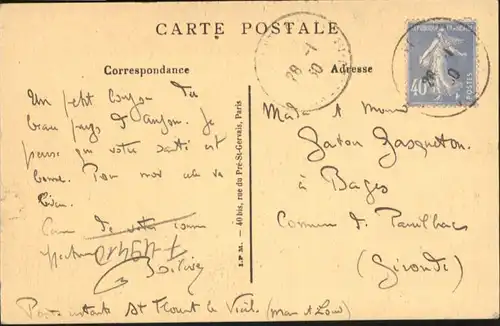 CARTE POSTALE
Correspondance
Adresse
28 -1 30
RÉPUBLIQUE FRANÇAISE
40
POSTES
28 -1 30
Un petit bonjour du
beau pays d'Anjou. Je
pense que votre santé est
bonne. Pour moi cela va
bien.
de votre
49410
I.P.M. - 40 bis, rue du Pré-St-Gervais, Paris
Gaston Gasqueton
à Bages
Commune de Pauillac
(Gironde)
Poste restante St Florent le Vieil (Main et Loire)